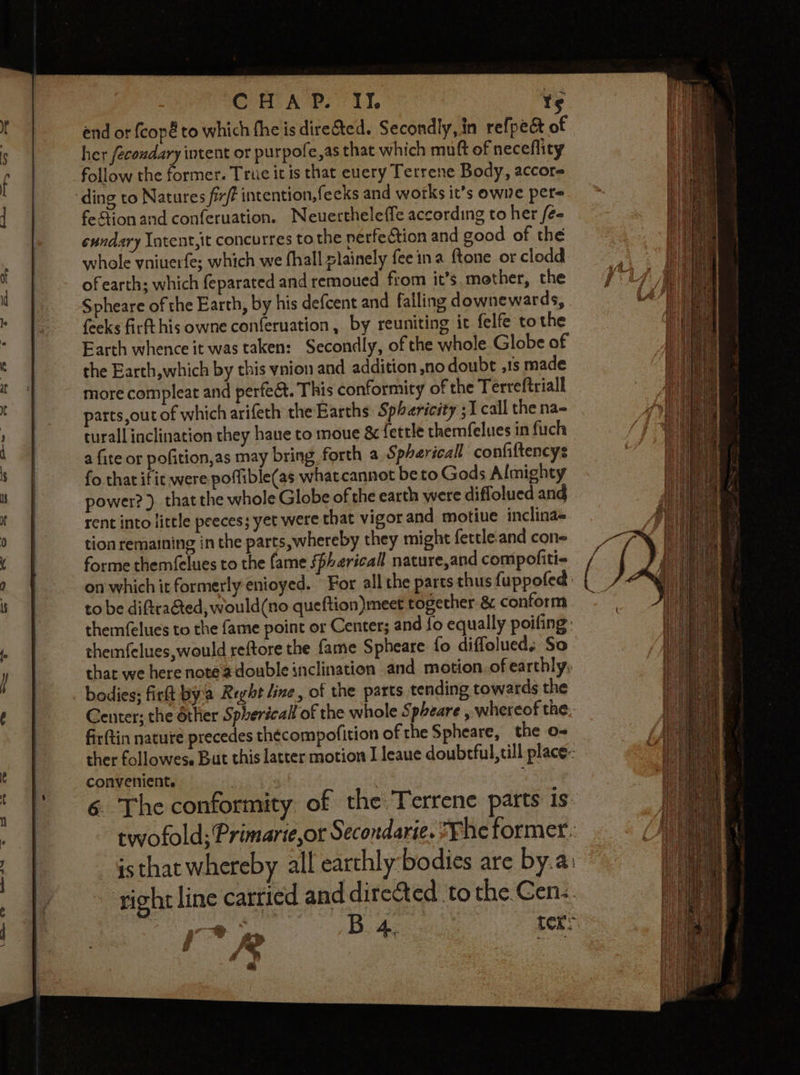 CHAP. II. 15
end or ſcopẽ to which ſhe is directed. Secondly, in reſpect of
her ſecondary intent or purpoſe,as that which muſt of neceſſity
follow the former. True it is that euery Terrene Body, accor-
ding to Natures firſt intention,ſeeks and works it's owne per-
fection and conſeruation. Neuertheleſſe according to her ſe-
cundary Intent,it concurres to the perfection and good of the
whole vniuerſe; which we ſhall plainely ſee in a ſtone or clodd
of earth; which ſeparated and remoued from it's mother, the
Spheare of the Earth, by his deſcent and falling downewards,
ſeeks firſt his owne conſeruation, by reuniting it ſelfe to the
Earth whence it was taken: Secondly, of the whole Globe of
the Earth,which by this vnion and addition,no doubt ,is made
more compleat and perfect. This conformity of the Terreſtriall
parts,out of which ariſeth the Earths Sphæricity ; I call the na-
turall inclination they haue to moue & ſettle themſelues in ſuch
a ſite or poſition,as may bring forth a Sphæricall conſiſtency:
ſo that if it were poſſible(as what cannot be to Gods Almighty
power?) that the whole Globe of the earth were diſſolued and
rent into little peeces; yet were that vigor and motiue inclina-
tion remaining in the parts,whereby they might ſettle and con-
forme themſelues to the ſame ſphæricall nature,and compoſiti-
on which it formerly enioyed. For all the parts thus ſuppoſed
to be diſtracted, would(no queſtion)meet together & conform
themſelues to the ſame point or Center; and ſo equally poiſing
themſelues,would reſtore the ſame Spheare ſo diſſolued. So
that we here note a double inclination and motion of earthly
bodies; firſt by a Reght line, of the parts tending towards the
Center; the other Sphericall of the whole Spheare , whereof the
firſt in nature precedes the compoſition of the Spheare, the o-
ther followes. But this latter motion I leaue doubtful,till place
convenient.
6 The conformity of the Terrene parts is
twofold; Primarie,or Secondarie. The former
is that whereby all earthly bodies are by a
right line carried and directed to the Cen-
B 4. ter: